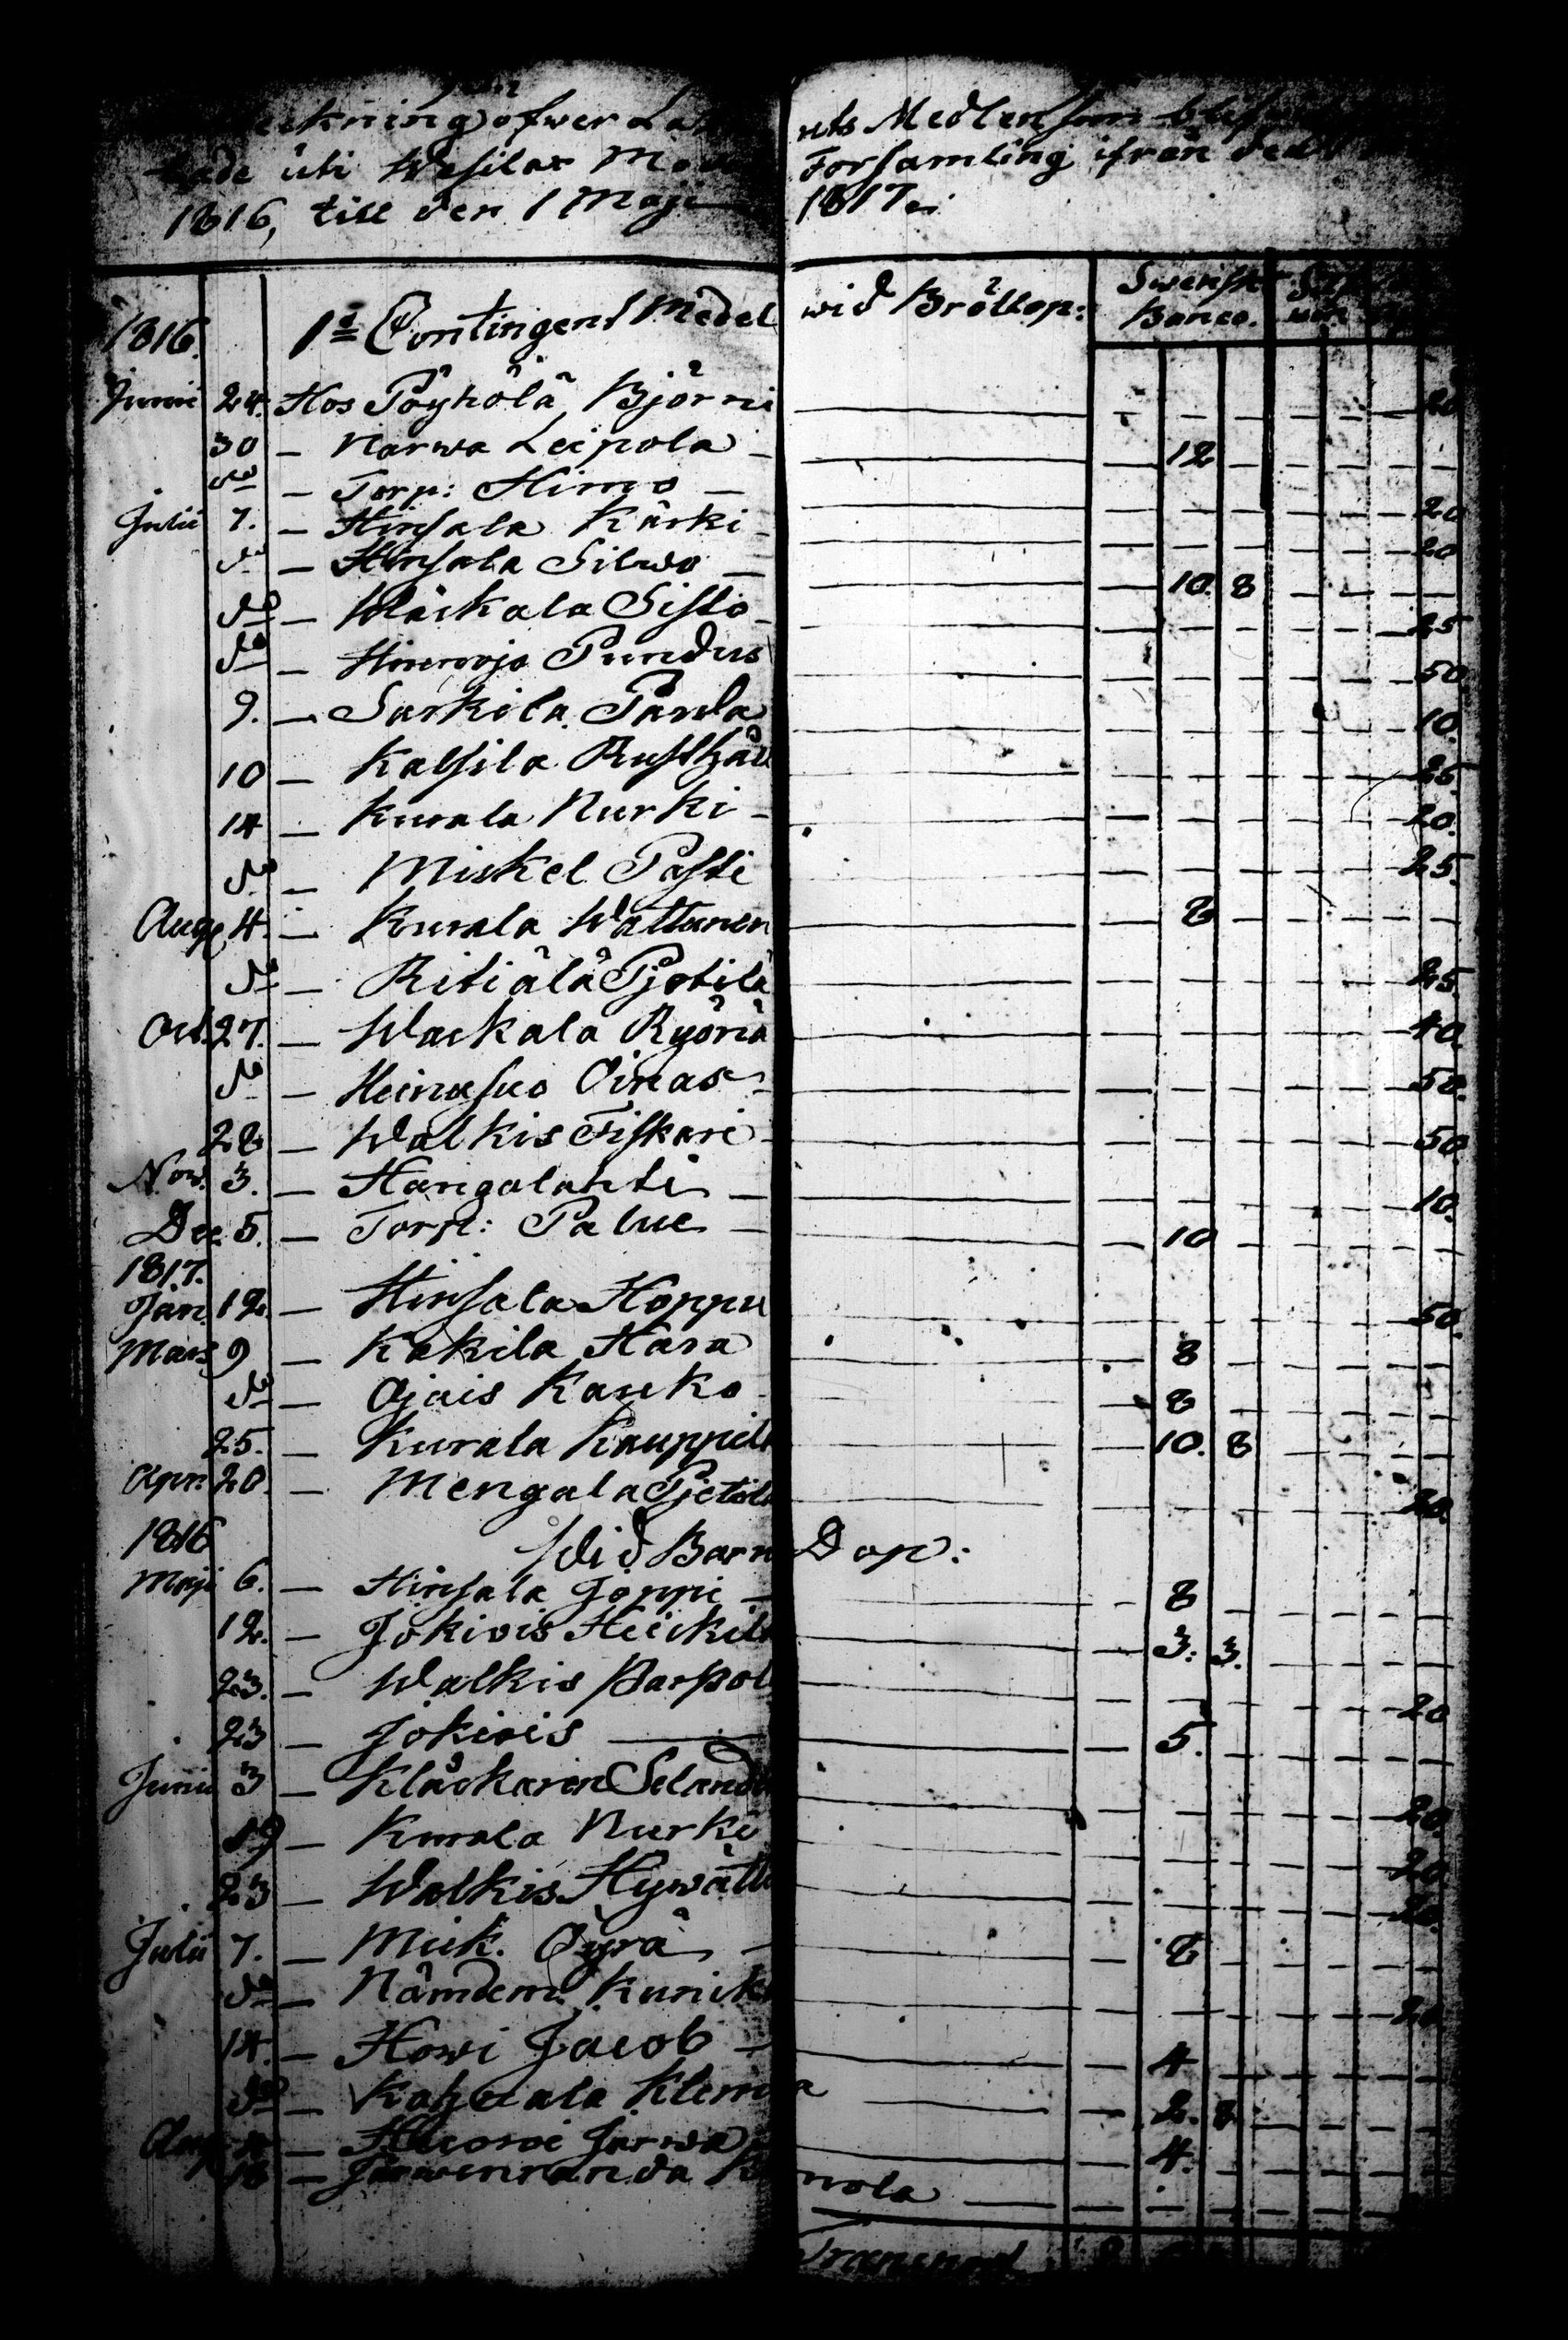 eckning öfwer La nets Medlen som blif
lade uti Wesilax Mod Forsamling ifrån den
1816, till den 1 Maji 1817.
1816. 1º Contingent Medel wid Bröllop: Swensk Banco.
Junii 24. Hos Pöyhölä Björni — 20
30 — Narwa Leipola — 12
do — Torp: Himo — 20
Julii 7. — Hinsala Kärki — 20
do — Hinsala Silwo — 10. 8
do — Wäckala Sisto — 25
do — Pundus — 50
9. — Sarkila Panda — 10.
10 — Kalsila Rusthåll — 25
14 — Kurala Nurki — 20.
do — Miskel Passi — 25.
Aug. 4. — Kurala Wattanen — 8
do — Ritiälä Pjetilä — 25
Oct. 27. — Wackala Ryöriä — 40.
do — Heinasuo Oinas — 50.
28 — Walkis Fiskari — 50.
Now. 3. — Hangalahti — 10.
Dec. 5. — Torp: Palue — 10
1817.
Jan. 12. — Hinsala Hoppu — 50.
Mars 9 — Kakila Hara — 8
do — Ojais Kauko — 8
25. — Kurala Kauppila — 10. 8
Apr. 20. — Mengala Pjetilä — 20.
1816 Wid Barn Dop:
Maji 6. — Hinsala Joppi — 8
12. — Jokiois Heickilä — 3. 3.
23. — Walkis Parpol — 20
23 — Jokiois — 5.
Junii 3 — Klåckaren Seland — 20.
19 — Kurala Nurki — 20
23 — Walkis Hywätti — 20.
Julii 7. — Mick. Öyrä — 8
do — Nämdem. Kunik — 20
14. — Howi Jacob — 4
do — Kahuala Klemola — 2. 8
Aug. 4 — Jarwa — 4.
18 — Jarwenranda K nola —